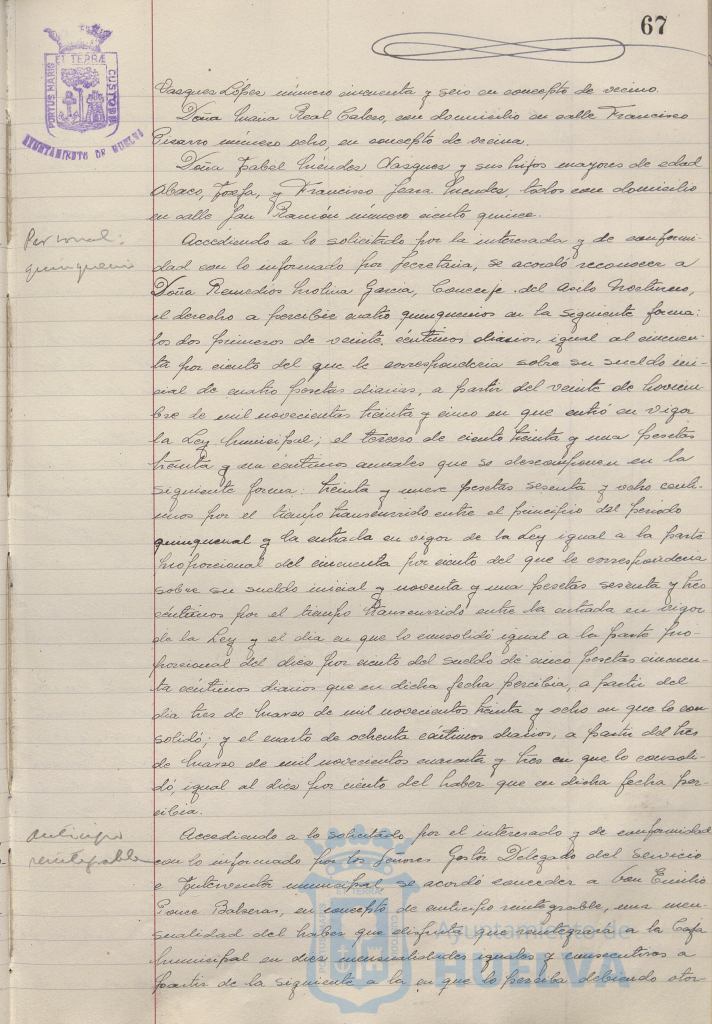 67
ET TERRÆ
PORTUS MARIS
CUSTODIA
AYUNTAMIENTO DE HUELVA
Vasques López número cincuenta y seis en concepto de vecino.
Doña Juana Real Calero, con domicilio en calle Francisco
Pizarro número ocho, en concepto de vecina.
Doña Isabel Méndes Vasques y sus hijos mayores de edad
Josefa, y Francisco Mendes, todos con domicilio
en calle San Ramón número ciento quince.
Personal:
quinquenio
Accediendo a lo solicitado por la interesada y de conformi-
dad con lo informado por Secretaria, se acordó reconocer a
Doña Remedios Molina Garcia, Conserje del Asilo Nocturno,
el derecho a percibir cuatro quinquenios en la siguiente forma:
los dos primeros de veinte céntimos diarios, igual al cincuen-
ta por ciento del que le corresponderia sobre su sueldo ini-
cial de cuatro pesetas diarias, a partir del veinte de Noviem-
bre de mil novecientos treinta y cinco en que entró en vigor
la Ley Municipal; el tercero de ciento treinta y una pesetas
treinta y un céntimos anuales que se descomponen en la
siguiente forma: treinta y nueve pesetas sesenta y ocho centi-
mos por el tiempo transcurrido entre el principio del periodo
quinquenal y la entrada en vigor de la Ley igual a la parte
proporcional del cincuenta por ciento del que le corresponderia
sobre su sueldo inicial y noventa y una pesetas sesenta y tres
céntimos por el tiempo transcurrido entre la entrada en vigor
de la Ley y el dia en que lo consolidó igual a la parte pro-
porcional del diez por ciento del sueldo de cinco pesetas cincuen-
ta céntimos diarios que en dicha fecha percibia, a partir del
dia tres de Marzo de mil novecientos treinta y ocho en que lo con
solidó; y el cuarto de ochenta céntimos diarios, a partir del tres
de Marzo de mil novecientos cuarenta y tres en que lo consoli-
dó, igual al diez por ciento del haber que en dicha fecha per-
cibia.
Anticipo
reintegrable
Accediendo a lo solicitado por el interesado y de conformidad
con lo informado por los Señores Gestor Delegado del Servicio
e Interventor municipal, se acordó conceder a Don Emilio
Ponce Balseras, en concepto de anticipo reintegrable, una men-
sualidad del haber que disfruta y que reintegrará a la Caja
Municipal en diez mensualidades iguales y consecutivas a
partir de la siguiente a la en que lo perciba debiendo otor-
Ayuntamiento de
HUELVA